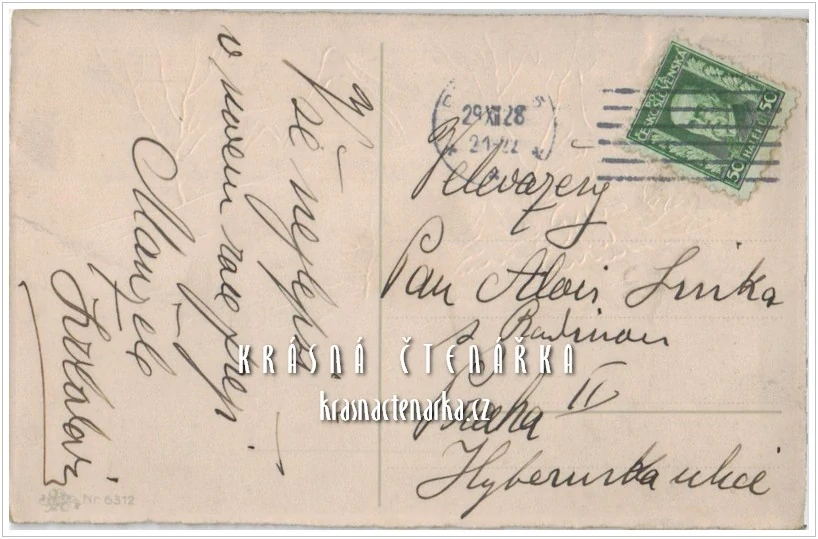 Vše nejlepší
v novém roce přejí
Manželé
29 XII 28
21-22
POŠTA
ČESKOSLOVENSKÁ
50 HALÉŘŮ 50
Velevážený
Pan Alois
s
Praha II
Hybernska ulice
KRÁSNÁ ČTENÁŘKA
krasnactenarka.cz
Nr. 6312